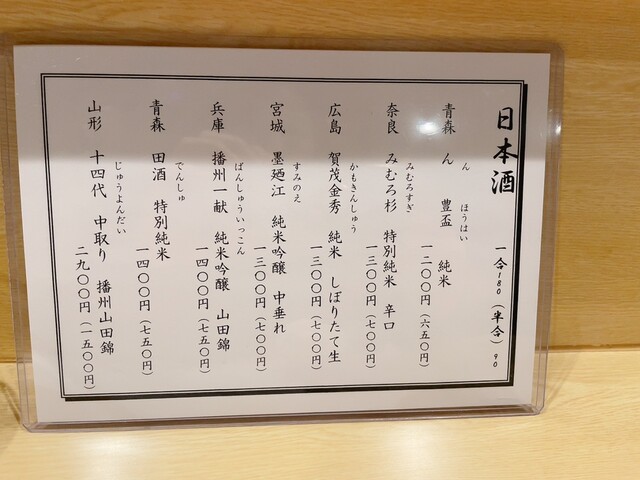 日本酒 一合180(半合)90
ん ほうはい
青森 ん 豊盃 純米
一二〇〇円(六五〇円)
みむろすぎ
奈良 みむろ杉 特別純米 辛口
一三〇〇円(七〇〇円)
かもきんしゅう
広島 賀茂金秀 純米 しぼりたて生
一三〇〇円(七〇〇円)
すみのえ
宮城 墨廼江 純米吟醸 中垂れ
一三〇〇円(七〇〇円)
ばんしゅういっこん
兵庫 播州一献 純米吟醸 山田錦
一四〇〇円(七五〇円)
でんしゅ
青森 田酒 特別純米
一四〇〇円(七五〇円)
じゅうよんだい
山形 十四代 中取り 播州山田錦
二九〇〇円(一五〇〇円)